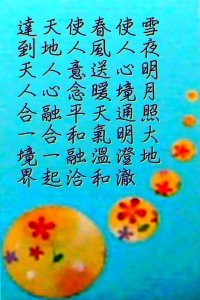 雪夜明月照大地
使人心境通明澄澈
春風送暖天氣溫和
使人意念平和融洽
天地人心融合一起
達到天人合一境界